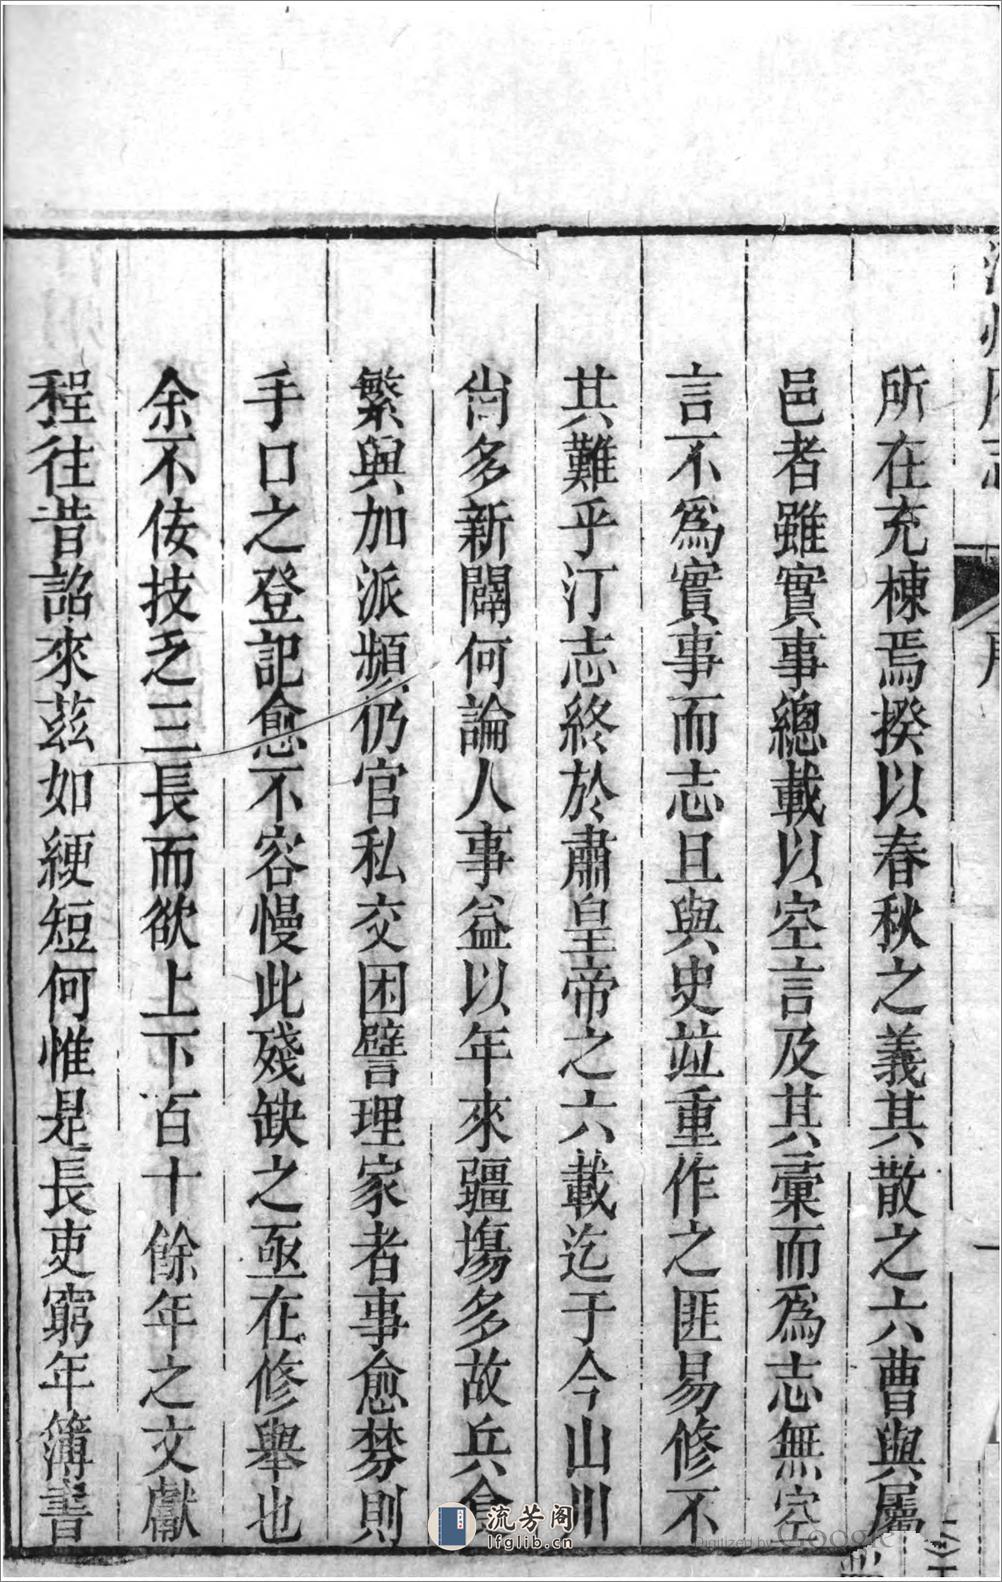 所在充棟焉揆以春秋之義其散之六曹與屬
邑者雖實事總載以空言及其彙而為志無空
言不為實事而志且與史竝重作之匪易修不
其難乎汀志終於肅皇帝之六載迄于今山川
尙多新闢何論人事益以年來疆場多故兵食
繁興加派頻仍官私交困譬理家者事愈棼則
手口之登記愈不容慢此殘缺之亟在修舉也
余不佞技乏三長而欲上下百十餘年之文獻
程往昔詔來茲如綆短何惟是長吏窮年簿書
流芳阁
lfglib.cn
Digitized by Google